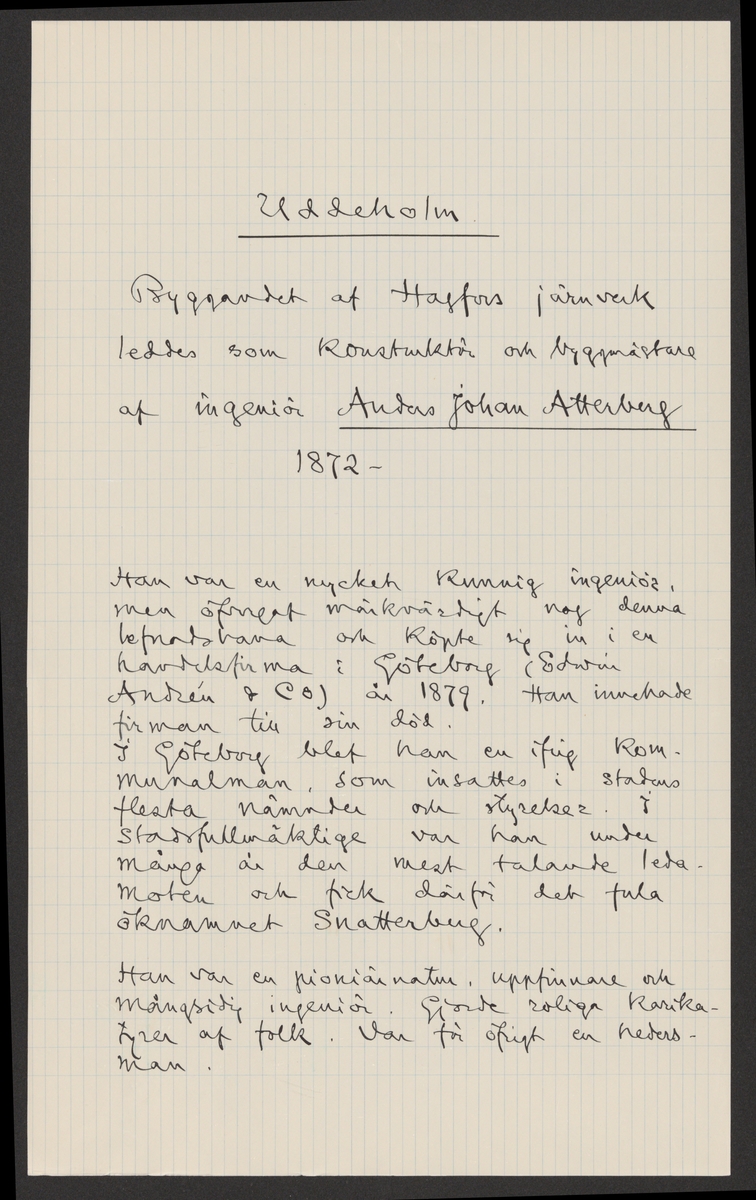 Uddeholm
Byggandet af Hagfors järnverk
leddes som Konstruktör och byggmästare
af ingeniör Anders Johan Atterberg
1872 –
Han var en mycket Kunnig ingeniör,
men öfvergaf märkvärdigt nog denna
lefnadsbana och Köpte sig in i en
handelsfirma i Göteborg (Edwin
Andrén & Co) år 1879. Han innehade
firman till sin död.
I Göteborg blef han en ifrig Kom-
munalman, som insattes i stadens
flesta nämnder och styrelser. I
Stadsfullmäktige var han under
många år den mest talande leda-
moten och fick därför det fula
öknamnet Snatterberg.
Han var en pioniärnatur, uppfinnare och
mångsidig ingeniör. Gjorde roliga Karika-
tyrer af folk. Var för öfrigt en heders-
man.